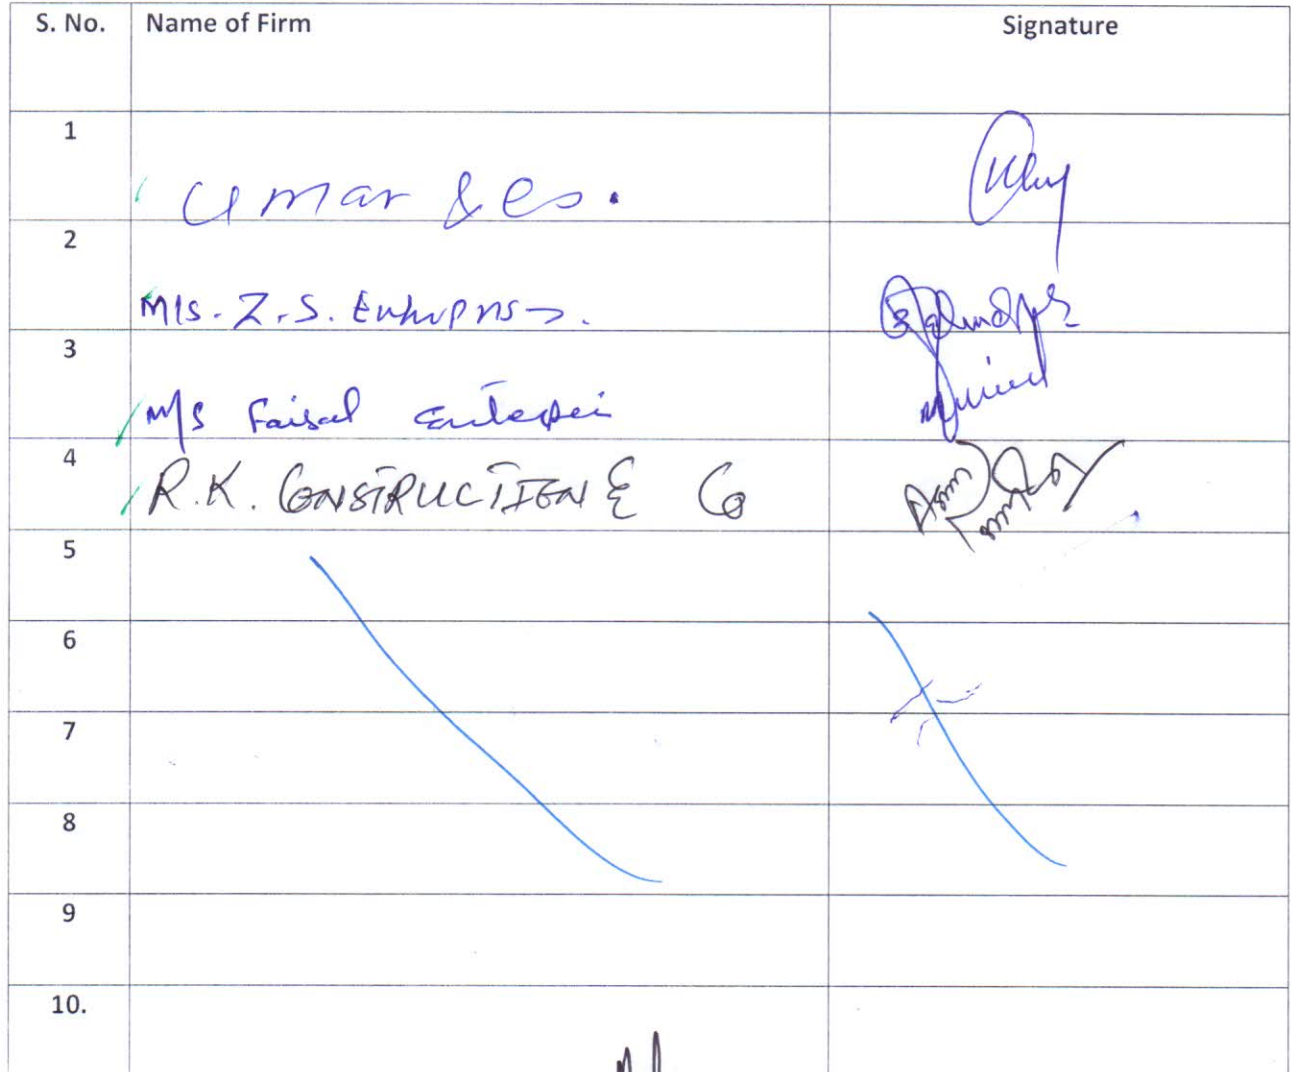 S. No. Name of Firm Signature
1
Umar & Co.
2
M/s. Z.S. Enterprises.
3
M/s Faisal Enterprises
4
R.K. CONSTRUCTION & Co
5
6
7
8
9
10.